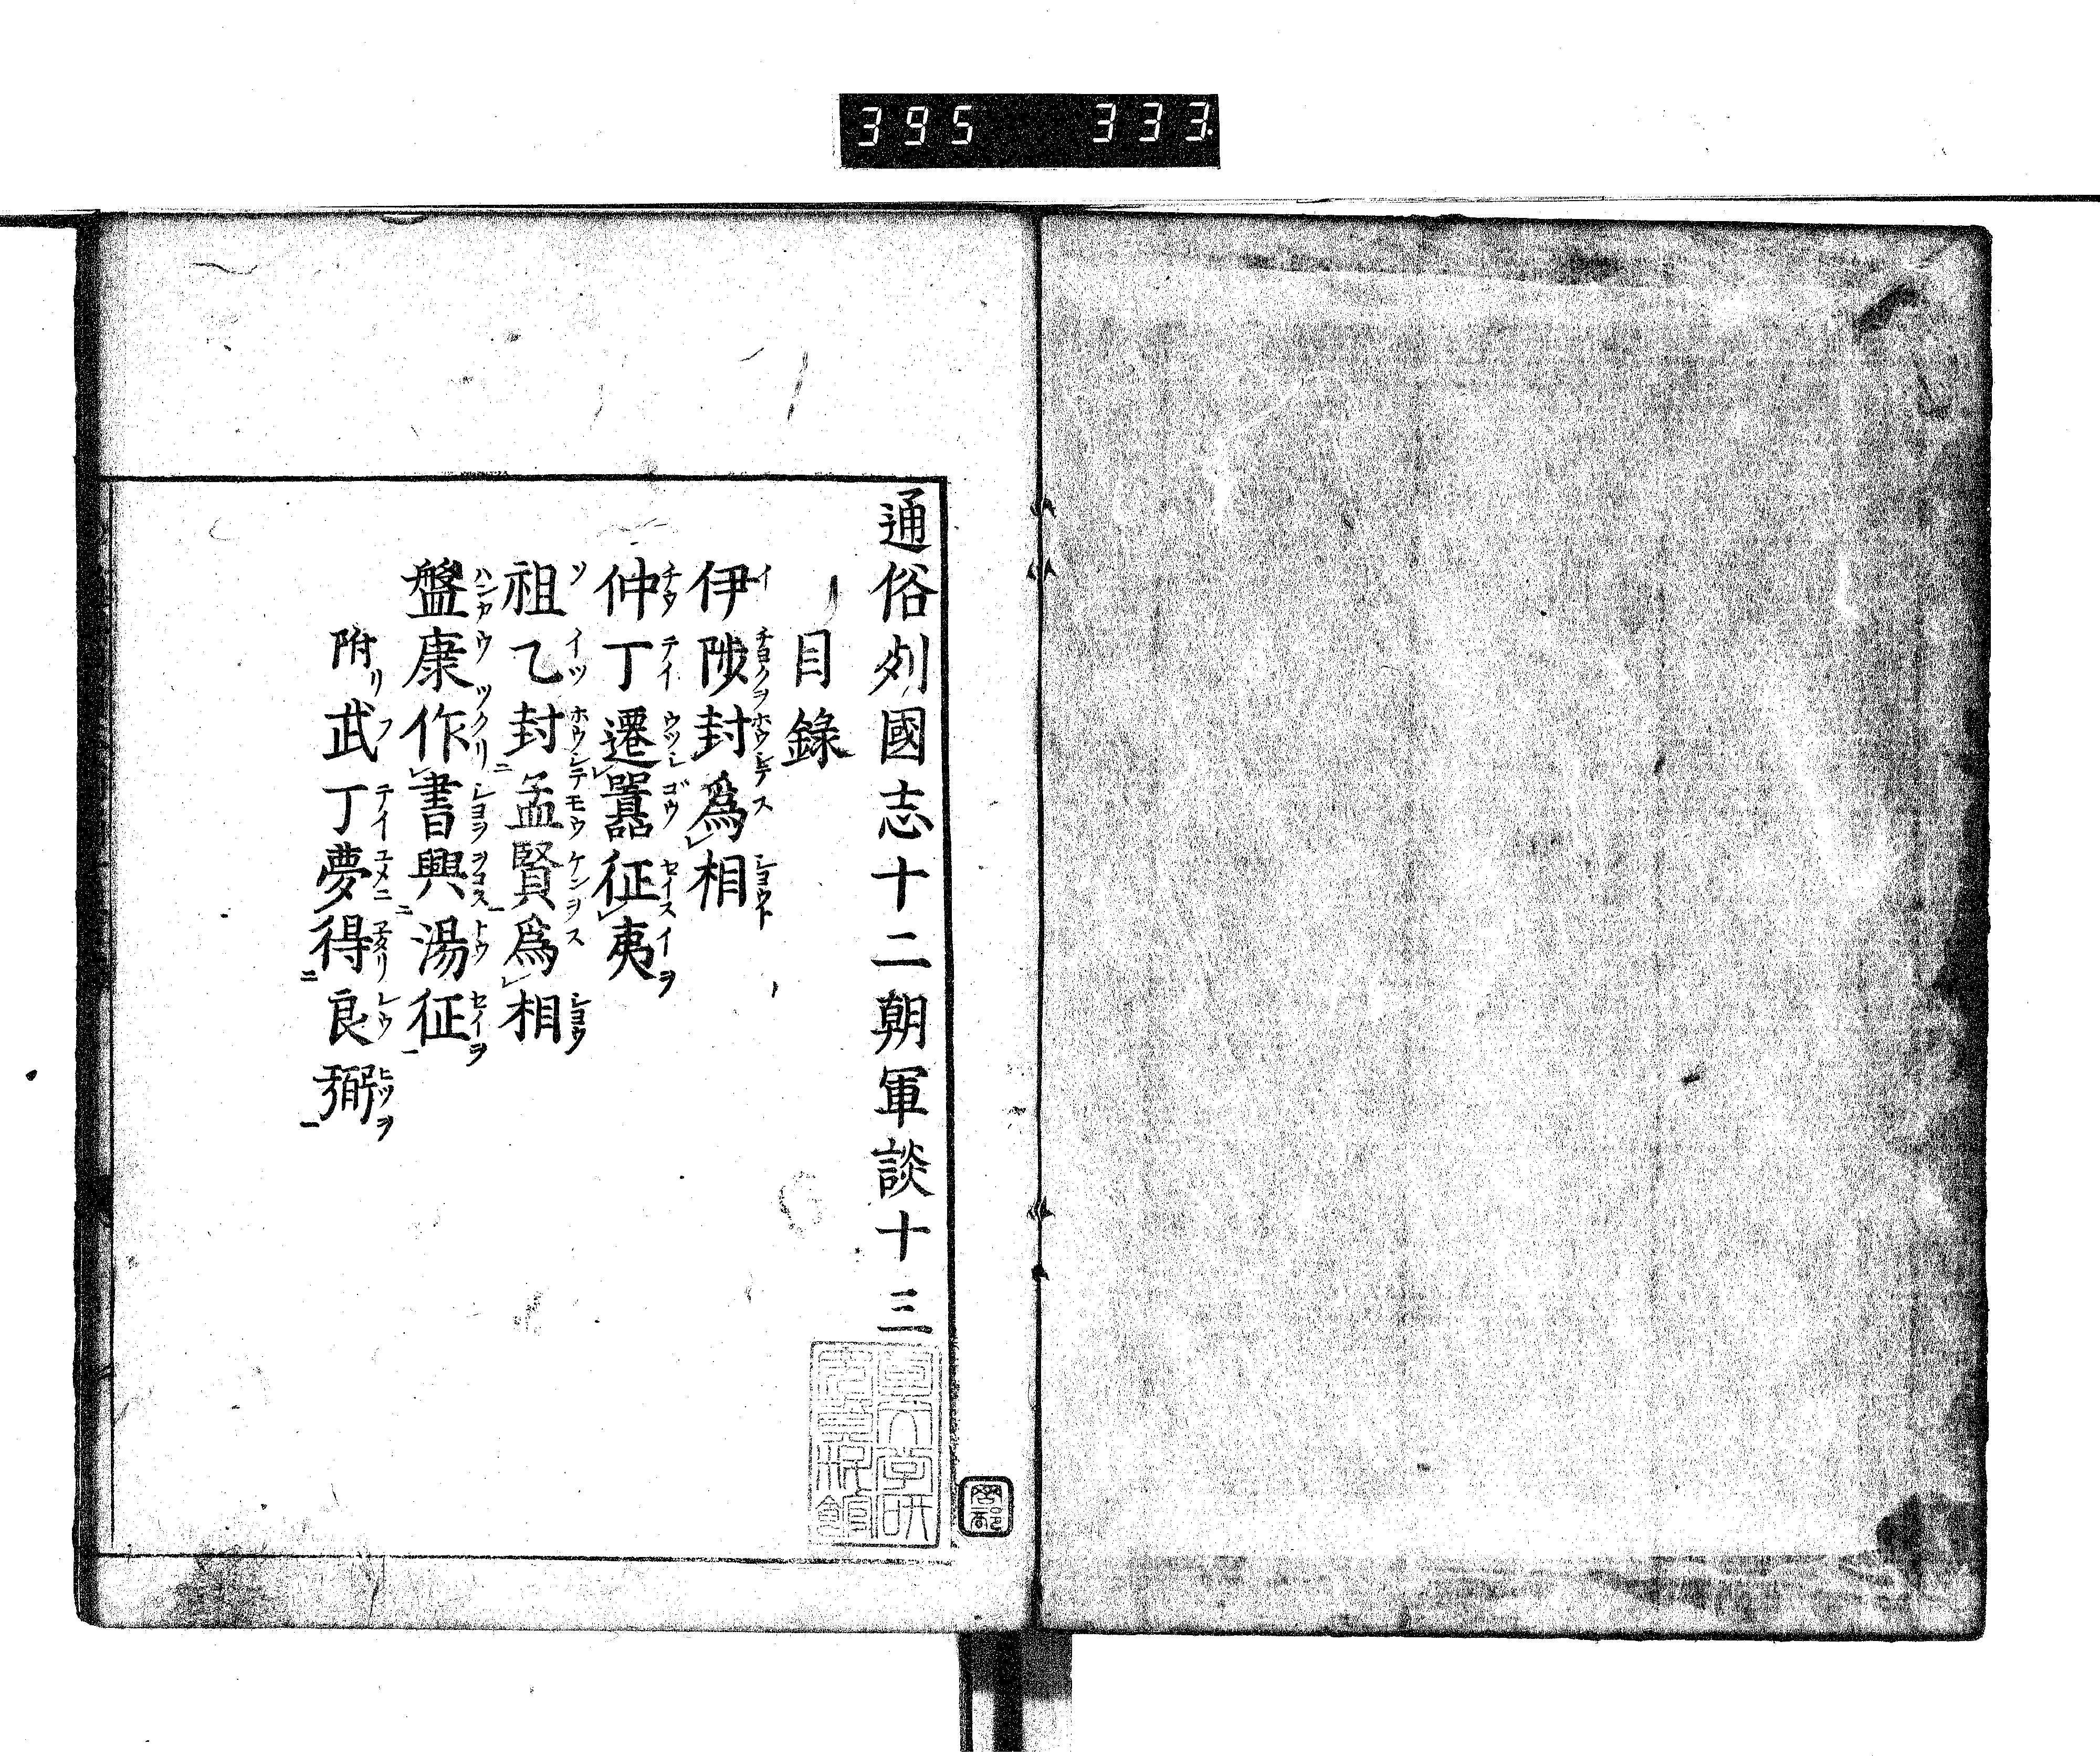 395 333
通俗列國志十二朝軍談十三
目錄
伊陟封爲相
仲丁遷囂征夷
祖乙封孟賢爲相
盤康作書興湯征
附リ武丁夢得良弼